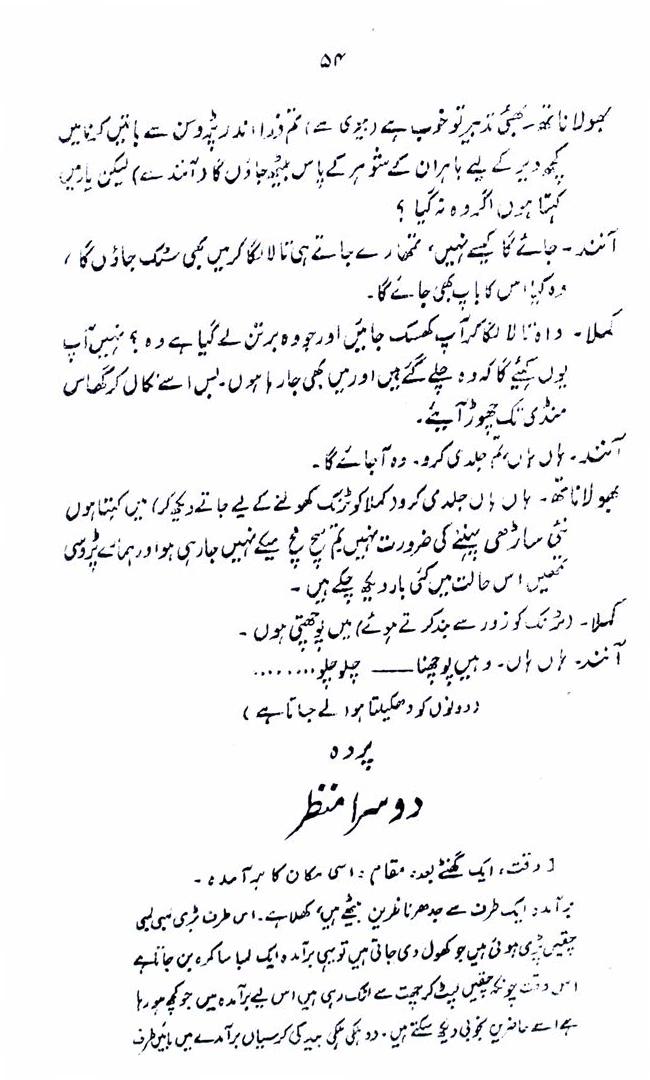 ۵۴
بھولا ناتھ۔ بھئی تدبیر تو خوب ہے (بیوی سے) تم ذرا اندر پڑوسن سے باتیں کرنا میں
کچھ دیر کے لیے باہر ان کے شوہر کے پاس بیٹھ جاؤں گا (آنند سے) لیکن یار میں
کہتا ہوں اگر وہ نہ گیا ؟
آنند۔ جائے گا کیسے نہیں، تمھارے جاتے ہی تالا لگا کر میں بھی سٹک جاؤں گا ،
وہ کیا اس کا باپ بھی جائے گا۔
کملا۔ واہ تالا لگا کر آپ کھسک جائیں اور جو وہ برتن لے گیا ہے وہ ؟ نہیں آپ
یوں کہئیے گا کہ وہ چلے گئے ہیں اور میں بھی جا رہا ہوں۔ بس اسے نکال کر گھاس
منڈی تک چھوڑ آیئے۔
آنند۔ ہاں ہاں، تم جلدی کرو۔ وہ آ جائے گا۔
بھولا ناتھ۔ ہاں ہاں جلدی کرو (کملا کو ٹرنک کھولنے کے لیے جاتے دیکھ کر) میں کہتا ہوں
نئی ساڑھی پہننے کی ضرورت نہیں تم سچ مچ میکے نہیں جا رہی ہو اور ہمارے پڑوسی
تمھیں اس حالت میں کئی بار دیکھ چکے ہیں ۔
کملا۔ (ٹرنک کو زور سے بند کرتے ہوئے) میں پوچھتی ہوں ۔
آنند۔ ہاں ہاں۔ وہیں پوچھنا —— چلو چلو ........
(دونوں کو دھکیلتا ہوا لے جاتا ہے )
پردہ
دوسرا منظر
[ وقت، ایک گھنٹے بعد: مقام : اسی مکان کا برآمدہ ۔
برآمدہ ایک طرف سے جدھر ناظرین بیٹھے ہیں، کھلا ہے۔ اس طرف بڑی لمبی لمبی
چقیں پڑی ہوئی ہیں جو کھول دی جاتی ہیں تو یہی برآمدہ ایک لمبا سا کمرہ بن جاتا ہے
اس وقت چونکہ چقیں لپٹ کر چھت سے لٹک رہی ہیں اس لیے برآمدہ میں جو کچھ ہو رہا
ہے اسے حاضرین بخوبی دیکھ سکتے ہیں۔ دو ہلکی ہلکی بید کی کرسیاں برآمدے میں بائیں طرف